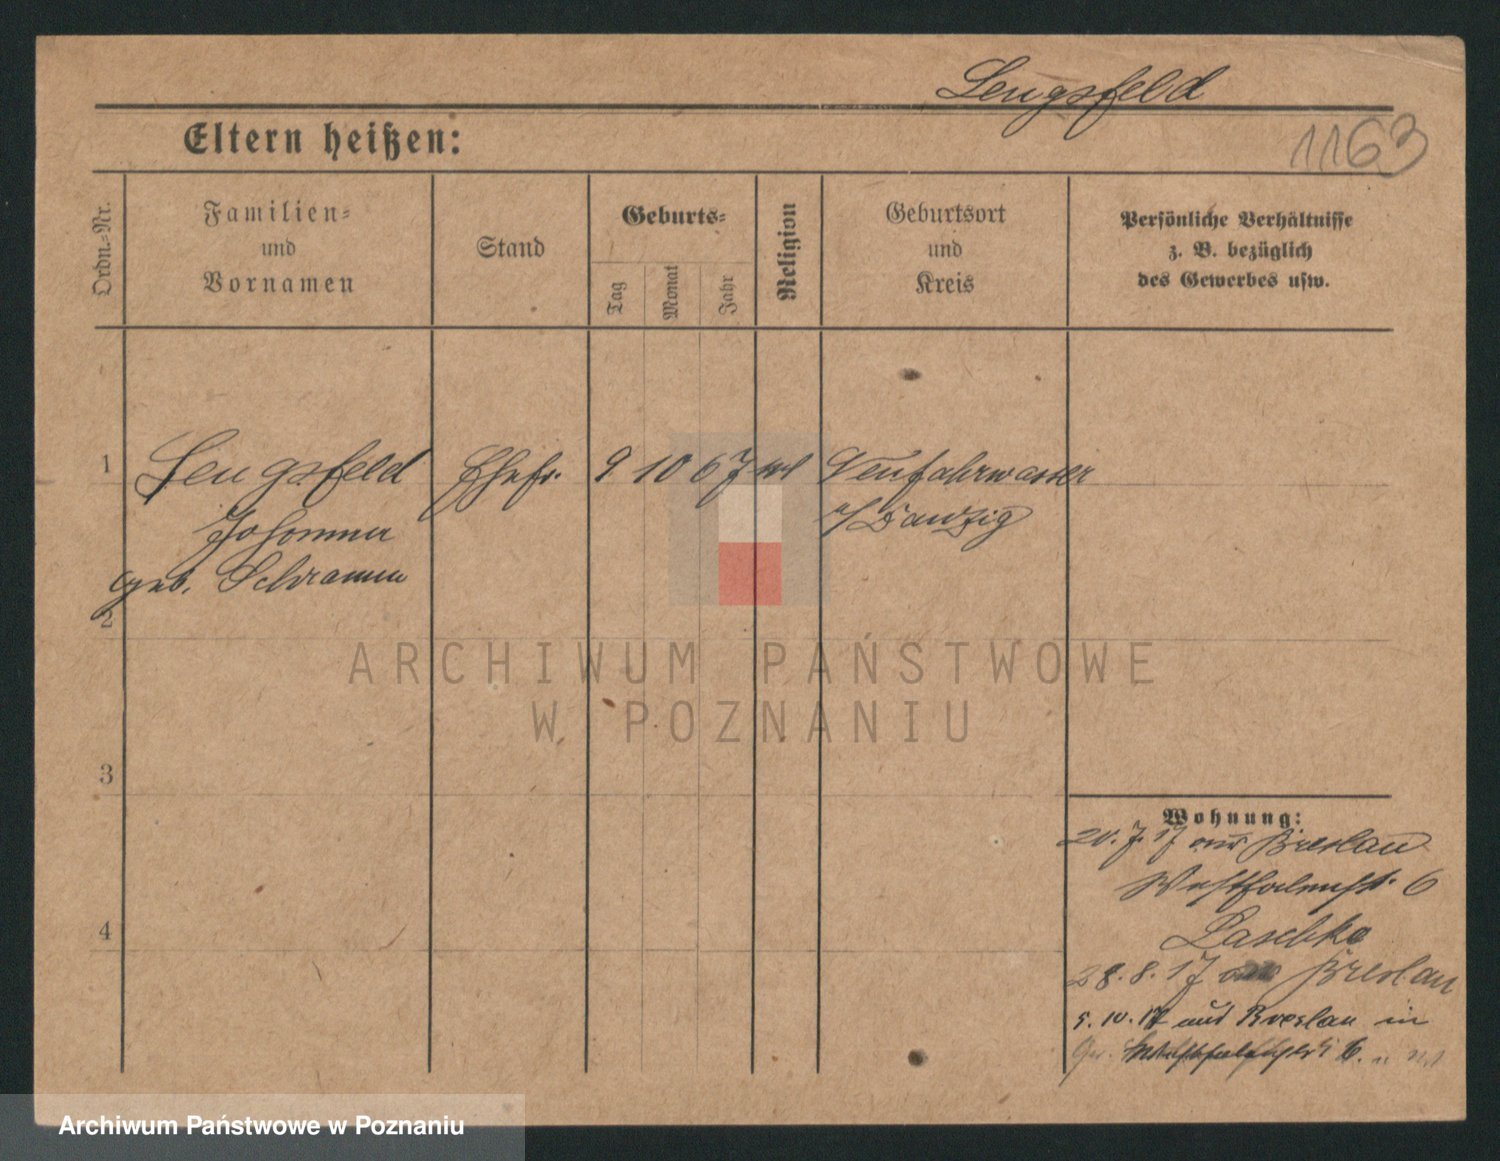 Lengsfeld
1163
Eltern heißen:
Ordn.=Nr.
Familien=
und
Vornamen
Stand
Geburts=
Tag
Monat
Jahr
Religion
Geburtsort
und
Kreis
Persönliche Verhältnisse
z. B. bezüglich
des Gewerbes usw.
1
Lengsfeld
Johanna
geb. Schramm
Ehefr.
9 10 67
Neufahrwasser
Danzig
2
3
4
Wohnung:
20.7.17 aus Breslau
6
28.8.17 Breslau
5.10.17 aus Breslau in
6.
ARCHIWUM PAŃSTWOWE
W POZNANIU
Archiwum Państwowe w Poznaniu